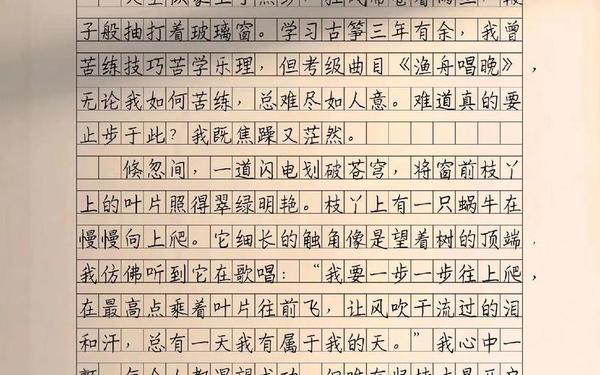 子般抽打着玻璃窗。学习古筝三年有余，我曾
苦练技巧苦学乐理，但考级曲目《渔舟唱晚》，
无论我如何苦练，总难尽如人意。难道真的要
止步于此？我既焦躁又茫然。
倏忽间，一道闪电划破苍穹，将窗前枝丫
上的叶片照得翠绿明艳。枝丫上有一只蜗牛在
慢慢向上爬。它细长的触角像是望着树的顶端，
我仿佛听到它在歌唱：“我要一步一步往上爬，
在最高点乘着叶片往前飞，让风吹干流过的泪
和汗，总有一天我有属于我的天。”我心中一